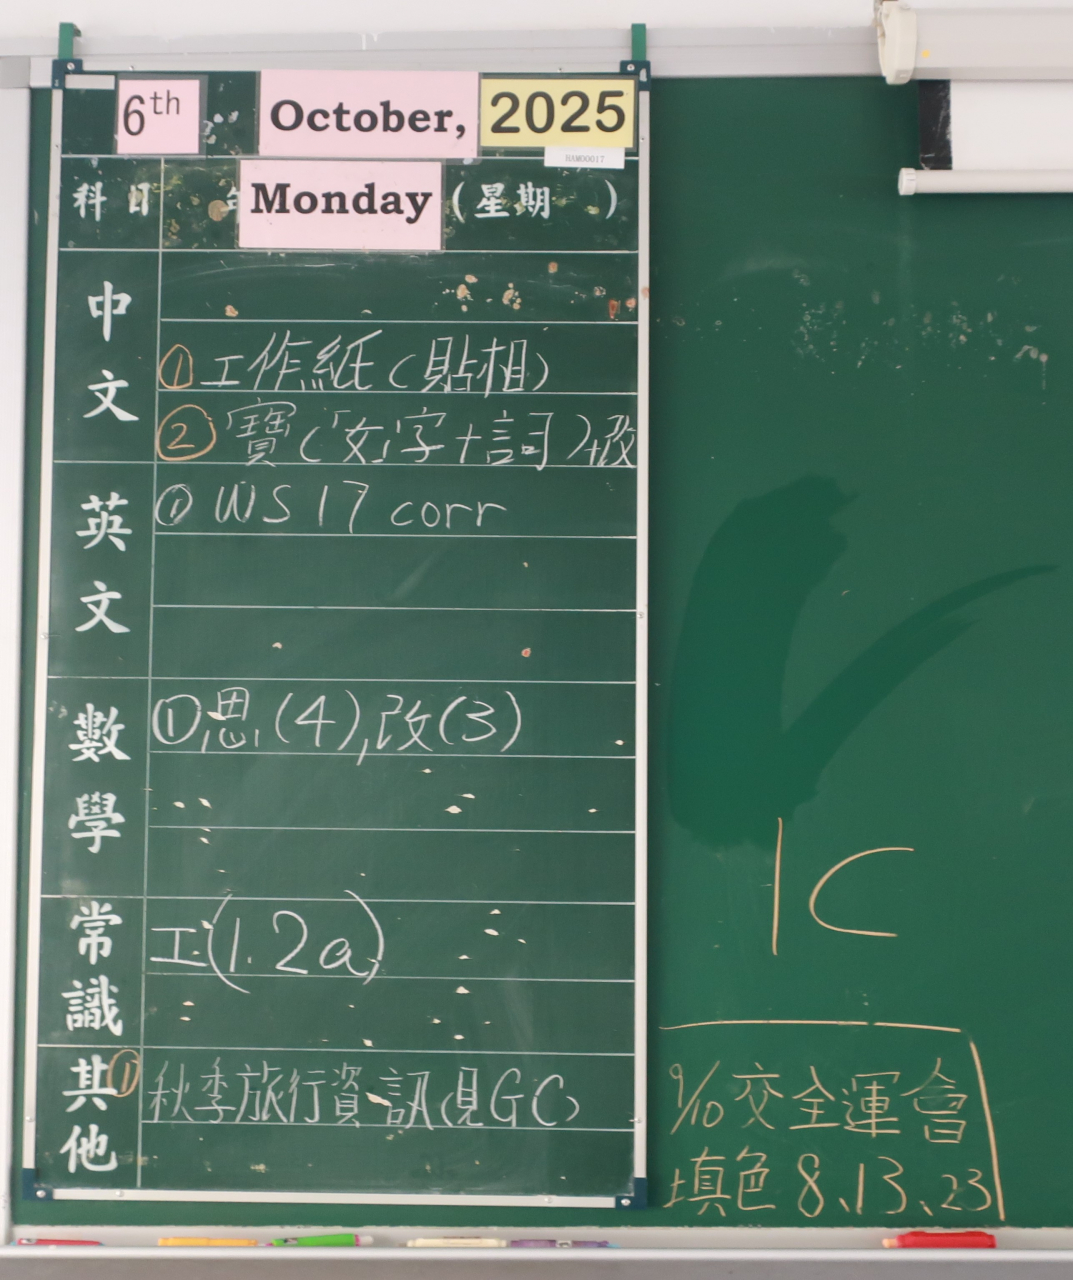 6th October, 2025
HAM00017
科目 Monday (星期 )
中文
①工作紙(貼相)
②寶(「女」字+詞)+改
英文
①WS 17 corr
數學
①思(4),改(3)
常識
工(1.2a)
其他
①秋季旅行資訊(見GC)
1C
9/10交全運會
填色8、13、23